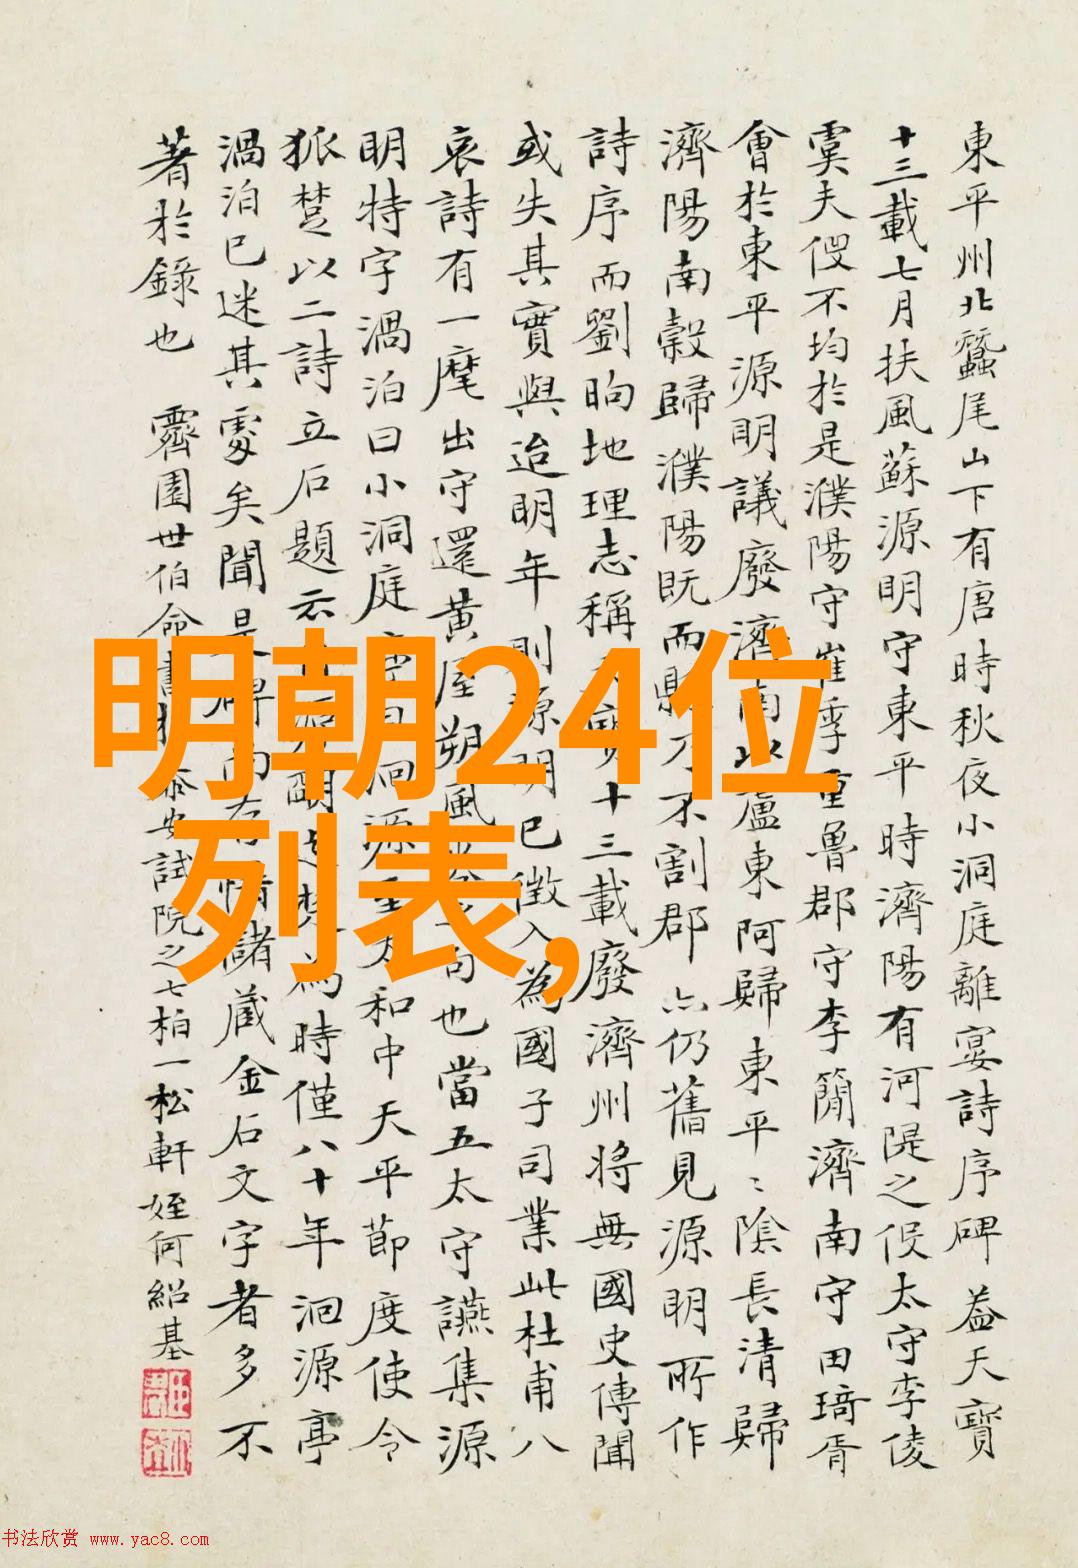 東平州北蠶尾山下有唐時秋夜小洞庭離宴詩序碑 葢天寶
十三載七月扶風蘇源明守東平時濟陽有河隄之役太守李倰
虞夫役不均於是濮陽守崔季重魯郡守李簡濟南守田琦胥
會於東平源明議廢濟南以盧東阿歸東平〻陰長清歸
濟陽南穀歸濮陽既而縣乃不割郡亦仍舊見源明所作
詩序而劉昫地理志稱天寶十三載廢濟州將無國史傳聞
或失其實與迨明年則源明已徵入為國子司業此杜甫八
哀詩有一麾出守還黃屋朔風句也當五太守讌集源
明特字渦泊曰小洞庭洄源亭太和中天平節度使令
狐楚以二詩立石題云楚為時僅八十年洄源亭
渦泊已迷其處矣聞是碑尚存惜儲藏金石文字者多不
著於錄也 霽園世伯命書於泰安試院之七柏一松軒 姪何紹基
明朝24位
列表,
书法欣赏 www.yac8.com